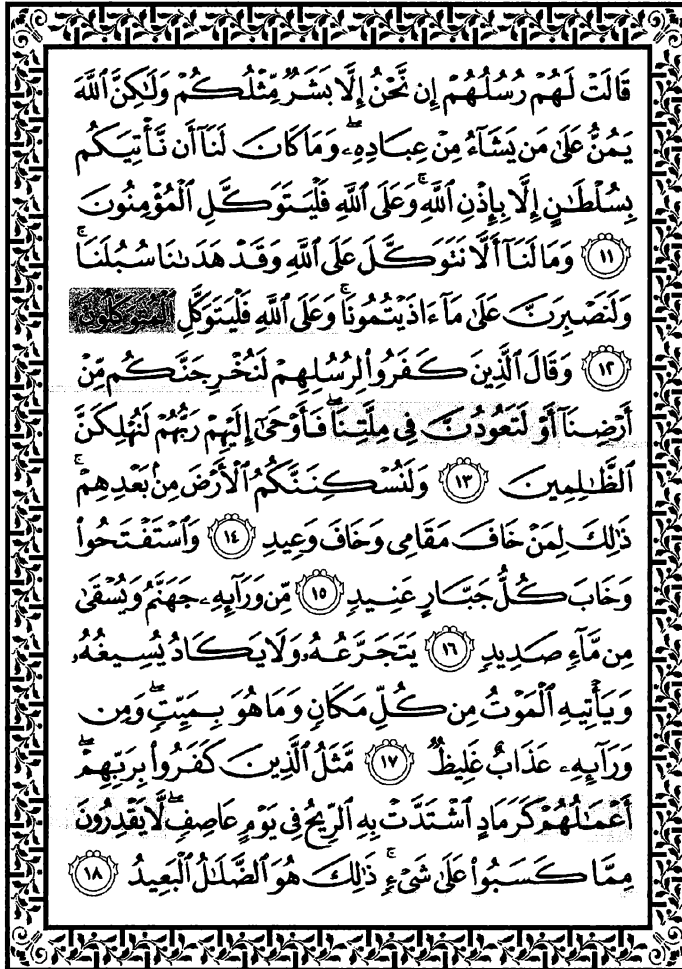 قَالَتْ لَهُمْ رُسُلُهُمْ إِن نَّحْنُ إِلَّا بَشَرٌ مِّثْلُكُمْ وَلَٰكِنَّ ٱللَّهَ
يَمُنُّ عَلَىٰ مَن يَشَآءُ مِنْ عِبَادِهِۦ ۖ وَمَا كَانَ لَنَآ أَن نَّأْتِيَكُم
بِسُلْطَٰنٍ إِلَّا بِإِذْنِ ٱللَّهِ ۚ وَعَلَى ٱللَّهِ فَلْيَتَوَكَّلِ ٱلْمُؤْمِنُونَ
١١ وَمَا لَنَآ أَلَّا نَتَوَكَّلَ عَلَى ٱللَّهِ وَقَدْ هَدَىٰنَا سُبُلَنَا ۚ
وَلَنَصْبِرَنَّ عَلَىٰ مَآ ءَاذَيْتُمُونَا ۚ وَعَلَى ٱللَّهِ فَلْيَتَوَكَّلِ ٱلْمُتَوَكِّلُونَ
١٢ وَقَالَ ٱلَّذِينَ كَفَرُوا۟ لِرُسُلِهِمْ لَنُخْرِجَنَّكُم مِّنْ
أَرْضِنَآ أَوْ لَتَعُودُنَّ فِى مِلَّتِنَا ۖ فَأَوْحَىٰٓ إِلَيْهِمْ رَبُّهُمْ لَنُهْلِكَنَّ
ٱلظَّٰلِمِينَ ١٣ وَلَنُسْكِنَنَّكُمُ ٱلْأَرْضَ مِنۢ بَعْدِهِمْ ۚ
ذَٰلِكَ لِمَنْ خَافَ مَقَامِى وَخَافَ وَعِيدِ ١٤ وَٱسْتَفْتَحُوا۟
وَخَابَ كُلُّ جَبَّارٍ عَنِيدٍ ١٥ مِّن وَرَآئِهِۦ جَهَنَّمُ وَيُسْقَىٰ
مِن مَّآءٍ صَدِيدٍ ١٦ يَتَجَرَّعُهُۥ وَلَا يَكَادُ يُسِيغُهُۥ
وَيَأْتِيهِ ٱلْمَوْتُ مِن كُلِّ مَكَانٍ وَمَا هُوَ بِمَيِّتٍ ۖ وَمِن
وَرَآئِهِۦ عَذَابٌ غَلِيظٌ ١٧ مَّثَلُ ٱلَّذِينَ كَفَرُوا۟ بِرَبِّهِمْ ۖ
أَعْمَٰلُهُمْ كَرَمَادٍ ٱشْتَدَّتْ بِهِ ٱلرِّيحُ فِى يَوْمٍ عَاصِفٍ ۖ لَّا يَقْدِرُونَ
مِمَّا كَسَبُوا۟ عَلَىٰ شَىْءٍ ۚ ذَٰلِكَ هُوَ ٱلضَّلَٰلُ ٱلْبَعِيدُ ١٨